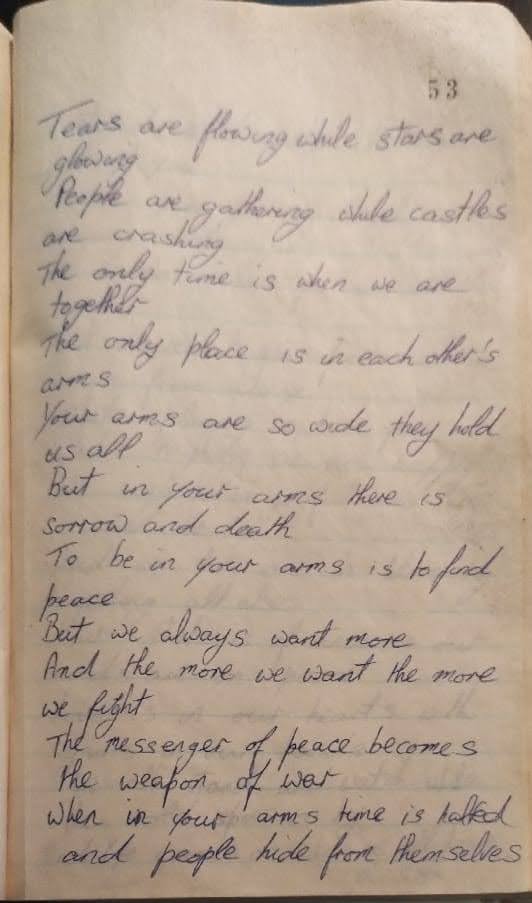 53
Tears are flowing while stars are
glowing
People are gathering while castles
are crashing
The only time is when we are
together
The only place is in each other's
arms
Your arms are so wide they hold
us all
But in your arms there is
sorrow and death
To be in your arms is to find
peace
But we always want more
And the more we want the more
we fight
The messenger of peace becomes
the weapon of war
When in your arms time is halted
and people hide from themselves